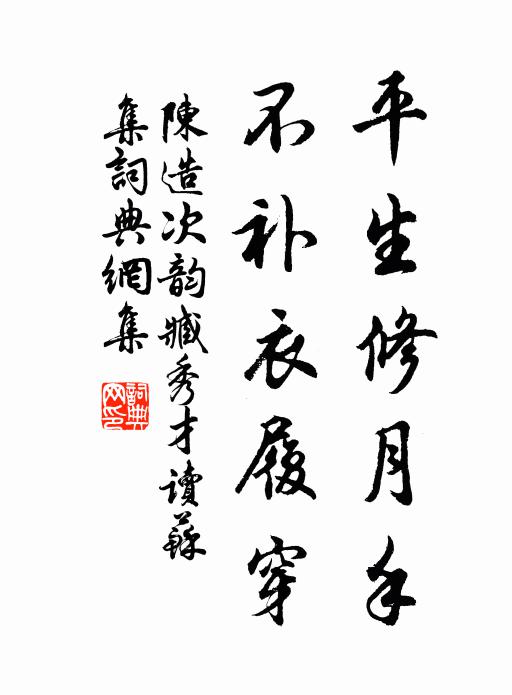 平生修月手
不补衣履穿
陳造次韵臧秀才讀蘇
集詞典網集
詞典
网印